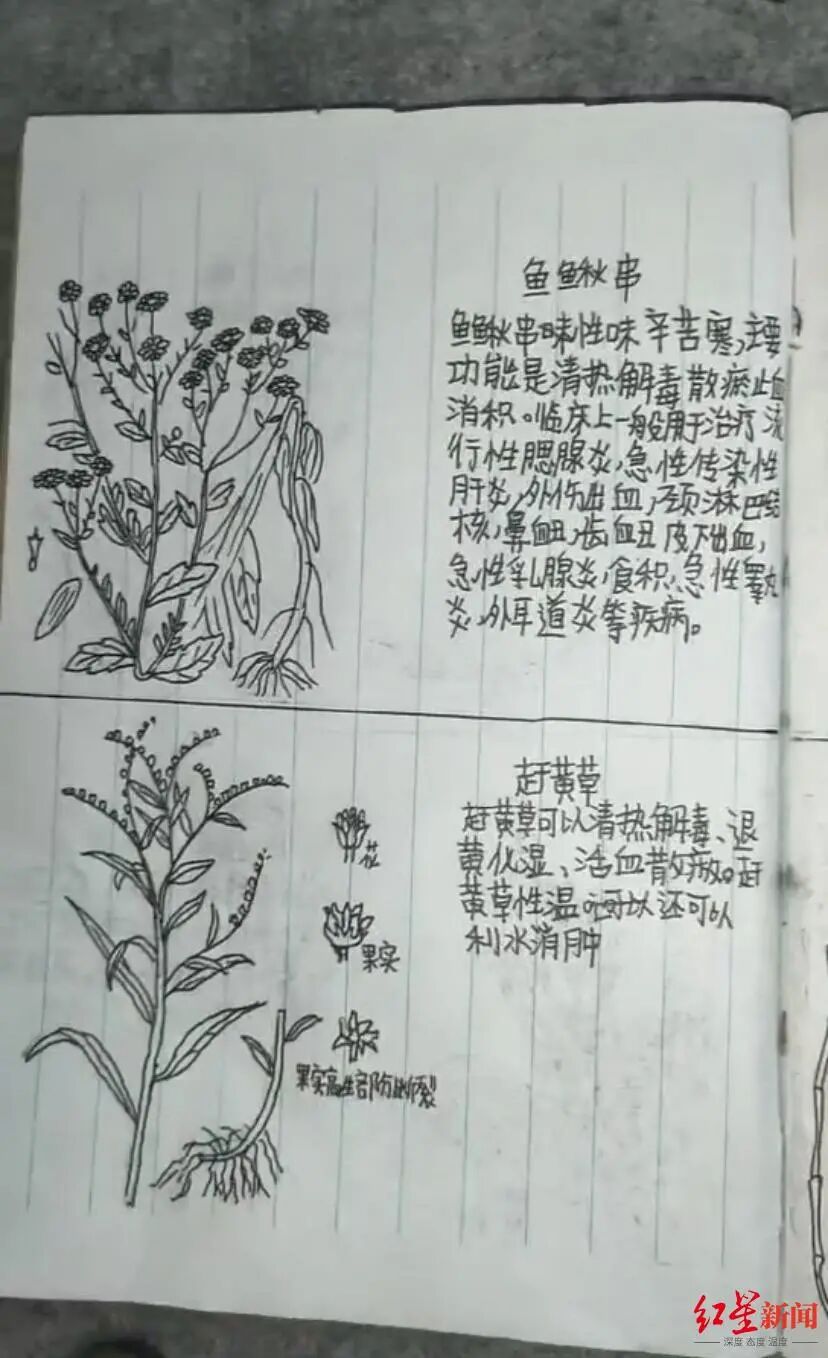 鱼鳅串
鱼鳅串味性味辛苦寒,主要
功能是清热解毒散瘀止血
消积。临床上一般用于治疗流
行性腮腺炎,急性传染性
肝炎,外伤出血,颈淋巴结
核,鼻衄,齿衄皮下出血,
急性乳腺炎,食积,急性睾丸
炎,外耳道炎等疾病。
赶黄草
赶黄草可以清热解毒、退
黄化湿、活血散瘀。赶
黄草性温 可以还可以
利水消肿
花
果实
果实
红星新闻
深度 态度 温度